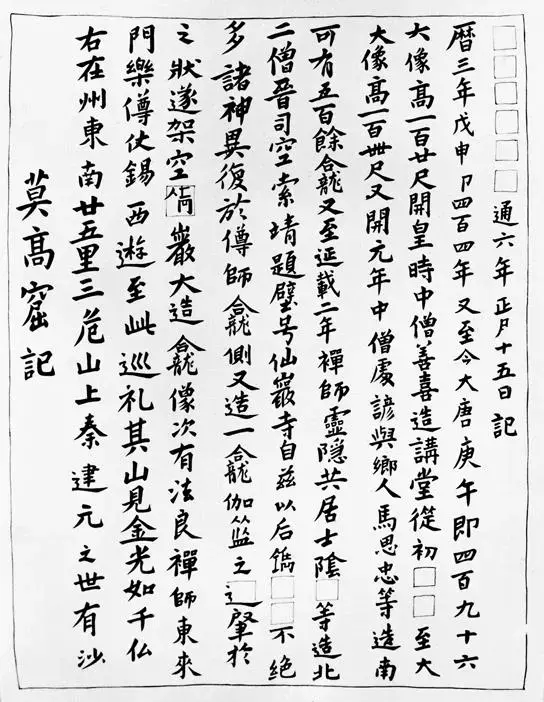 莫高窟記
右在州東南廿五里三危山上秦建元之世有沙
門樂僔仗錫西遊至此巡礼其山見金光如千仏
之狀遂架空巖大造龕像次有法良禪師東來
多諸神異復於僔師龕側又造一龕伽藍之□肇於
二僧晉司空索靖題壁号仙巖寺自兹以后鐫□□不绝
可有五百餘龕又至延載二年禪師靈隱共居士陰□等造北
大像髙一百卌尺又開元年中僧處諺與鄉人馬思忠等造南
大像髙一百廿尺開皇時中僧善喜造講堂從初□□至大
曆三年戊申卩四百四年又至今大唐庚午即四百九十六
□□□□□通六年正月十五日記